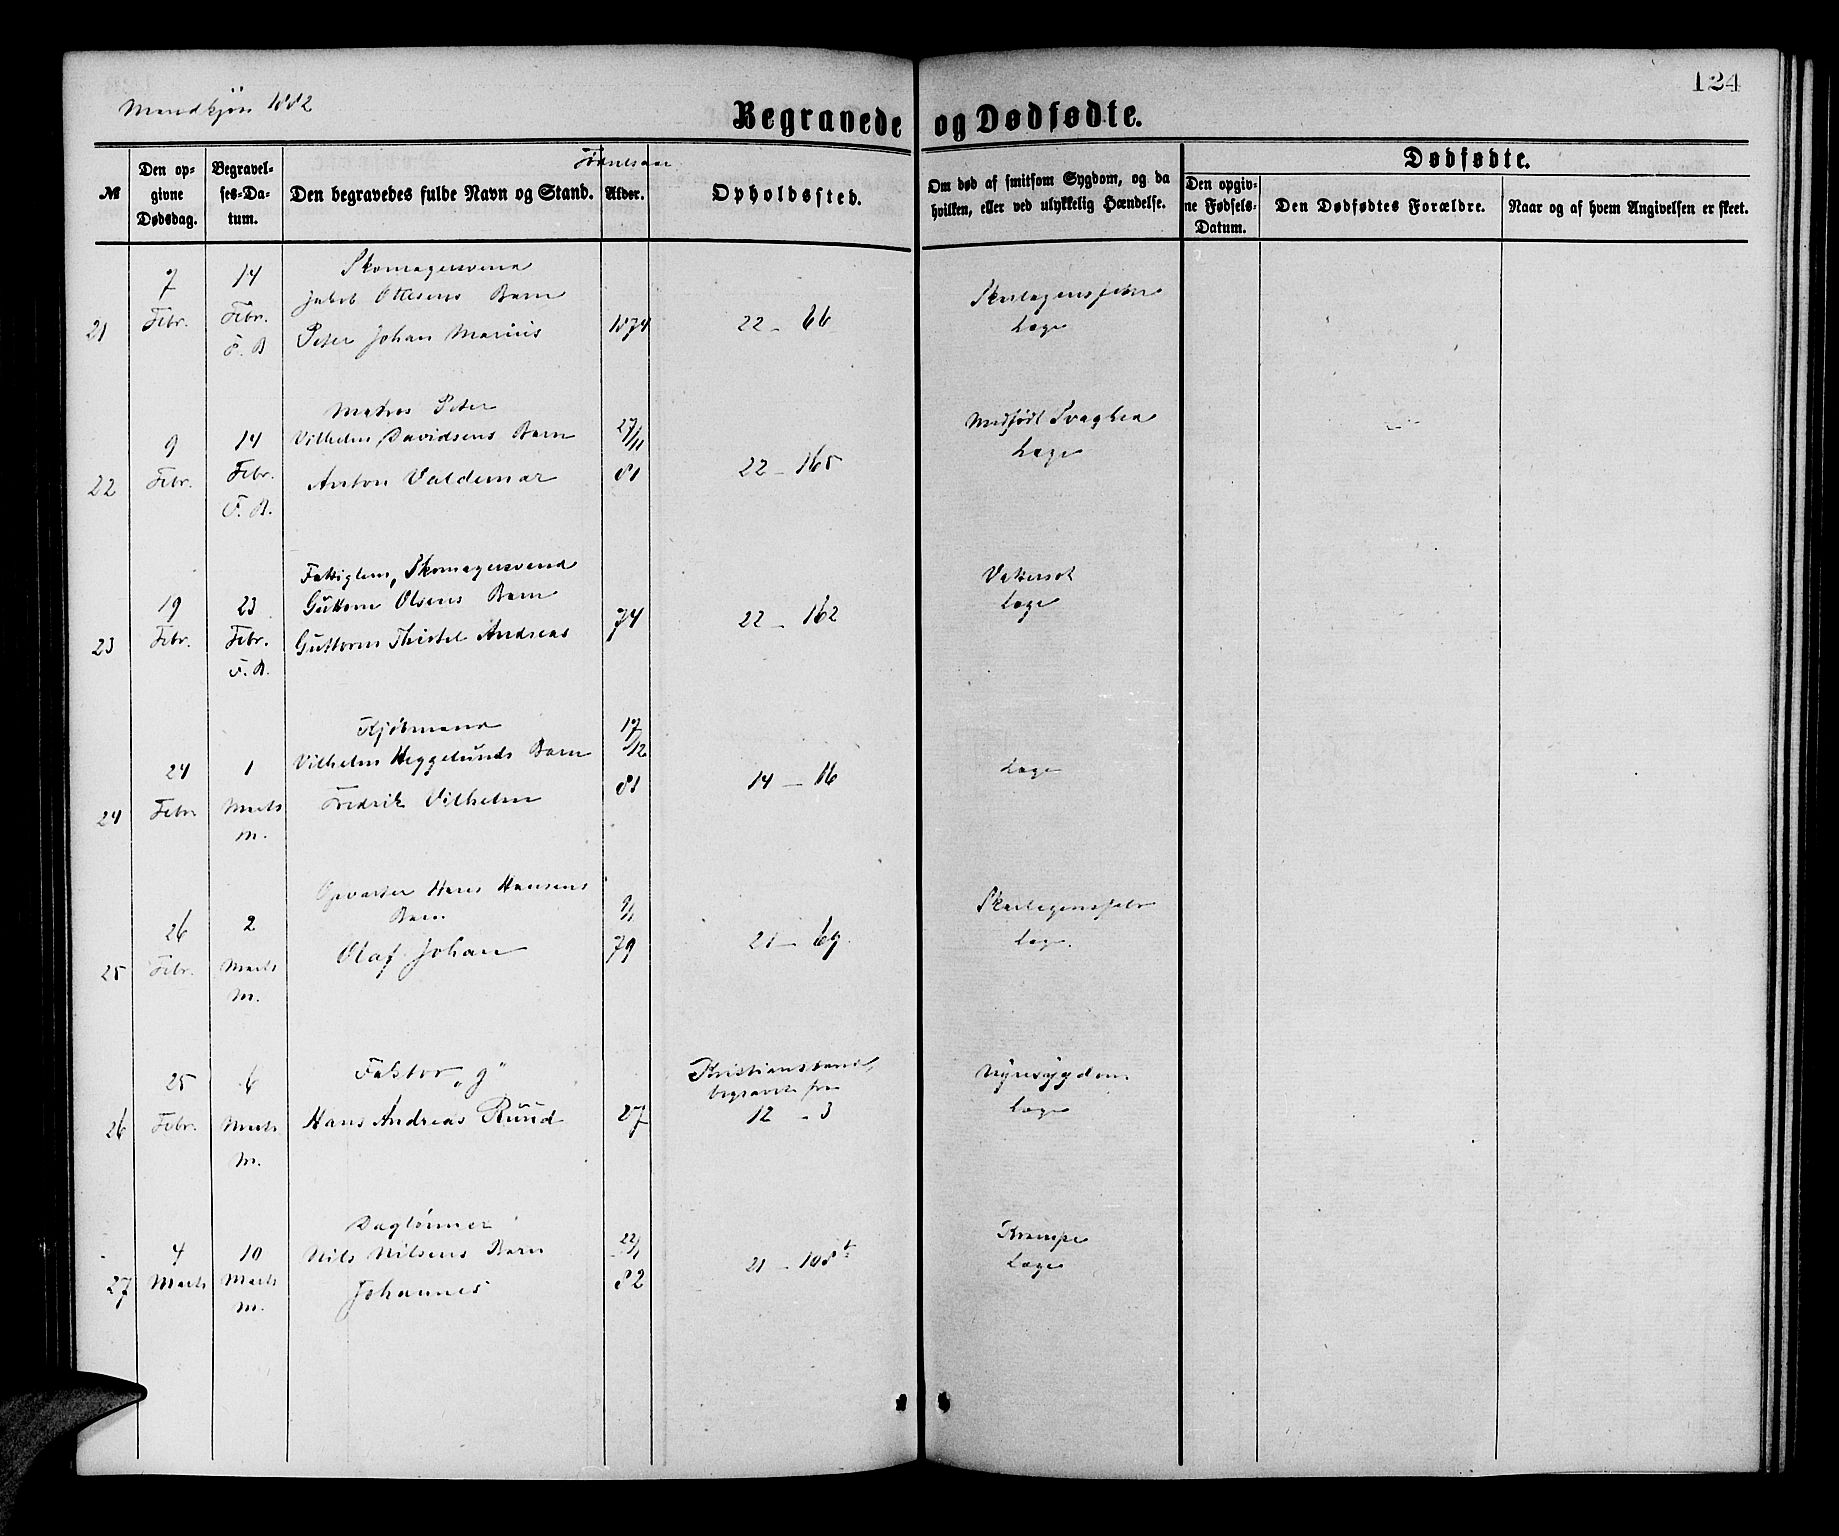 124
Mandkjön 1882
Begravede og Dødfødte.
Fødselsaar
Dødfødte.
№
Den op-
givne
Dødsdag.
Begravel-
ses-Da-
tum.
Den begravedes fulde Navn og Stand.
Alder.
Opholdssted.
Om død af smitsom Sygdom, og da
hvilken, eller ved ulykkelig Hændelse.
Den opgiv-
ne Fødsels-
Datum.
Den Dødfødtes Forældre.
Naar og af hvem Angivelsen er skeet.
21
7
Febr.
14
Febr.
F. B
Skomagersvend
Jakob Ottesens Barn
Peter Johan Marius
1874
22 - 66
Skarlagensfeber
Læge
22
9
Febr.
14
Febr.
F. B.
Matros Peter
Vilhelm Davidsens Barn
Anton Valdemar
27/11
81
22 - 165
Medfødt Svaghed
Læge
23
19
Febr.
23
Febr.
F. B.
Fattiglem, Skomagersvend
Guttorm Olsens Barn
Guttorm Thistel Andreas
74
22 - 162
Vattersot
Læge
24
24
Febr
1
Marts
M.
Kjøbmand
Vilhelm Heggelunds Barn
Fredrik Vilhelm
17/12
81
14 - 16
Læge
25
26
Febr.
2
Marts
M.
Opvarter Hans Hansens
Barn
Olaf Johan
9/1
79
21 - 69.
Skarlagensfeber
Læge.
26
25
Febr.
6
Marts
M.
Faktor "g"
Hans Andreas Ruud
27
Kristianssand,
begravet fra
12 - 3
Nyresygdom
Læge
27
4
Marts
10
Marts
M.
Daglønner
Nils Nilsens Barn
Johannes
22/1
82
21 - 108 b
Krampe
Læge